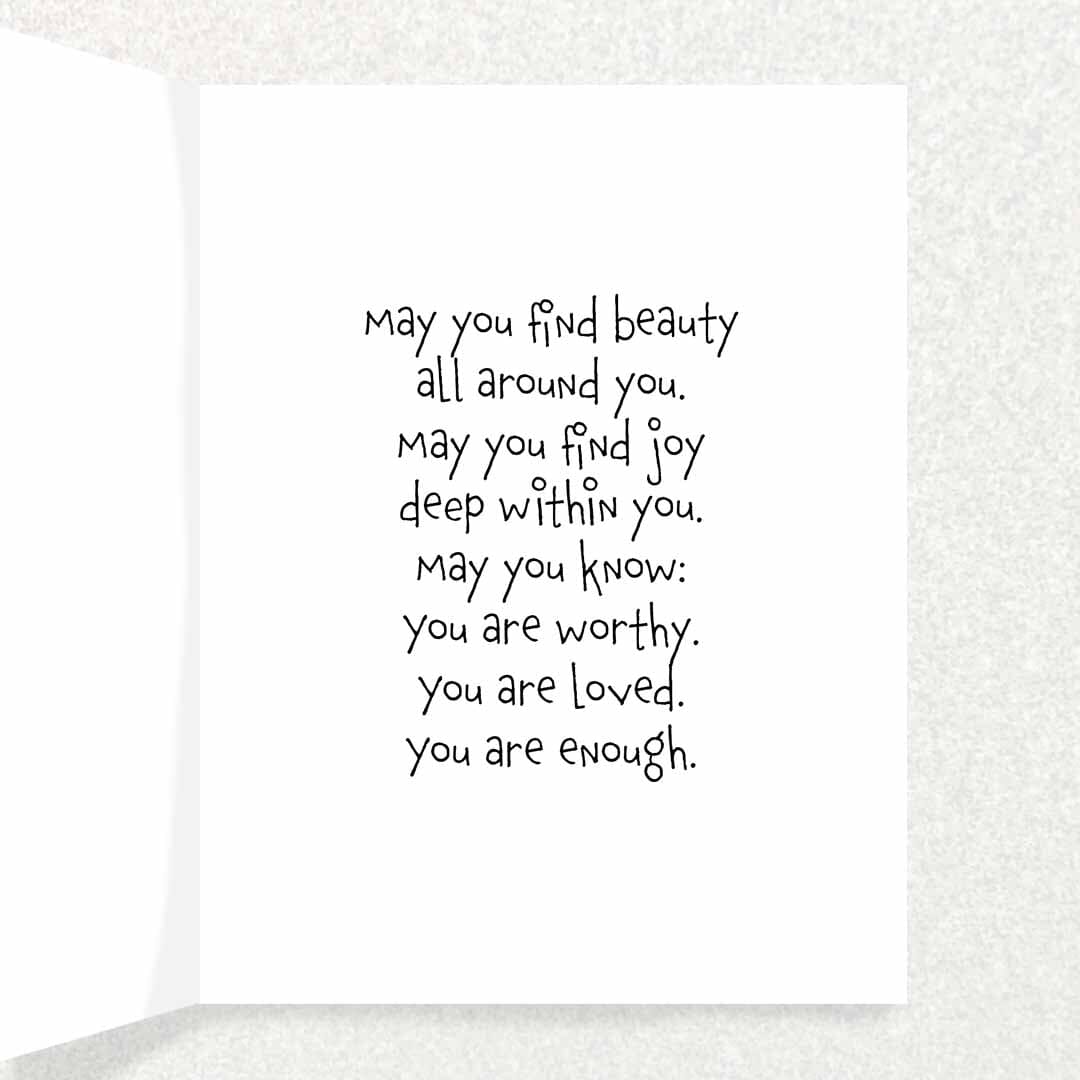 May you find beauty
all around you.
May you find joy
deep within you.
May you know:
you are worthy.
you are loved.
you are enough.